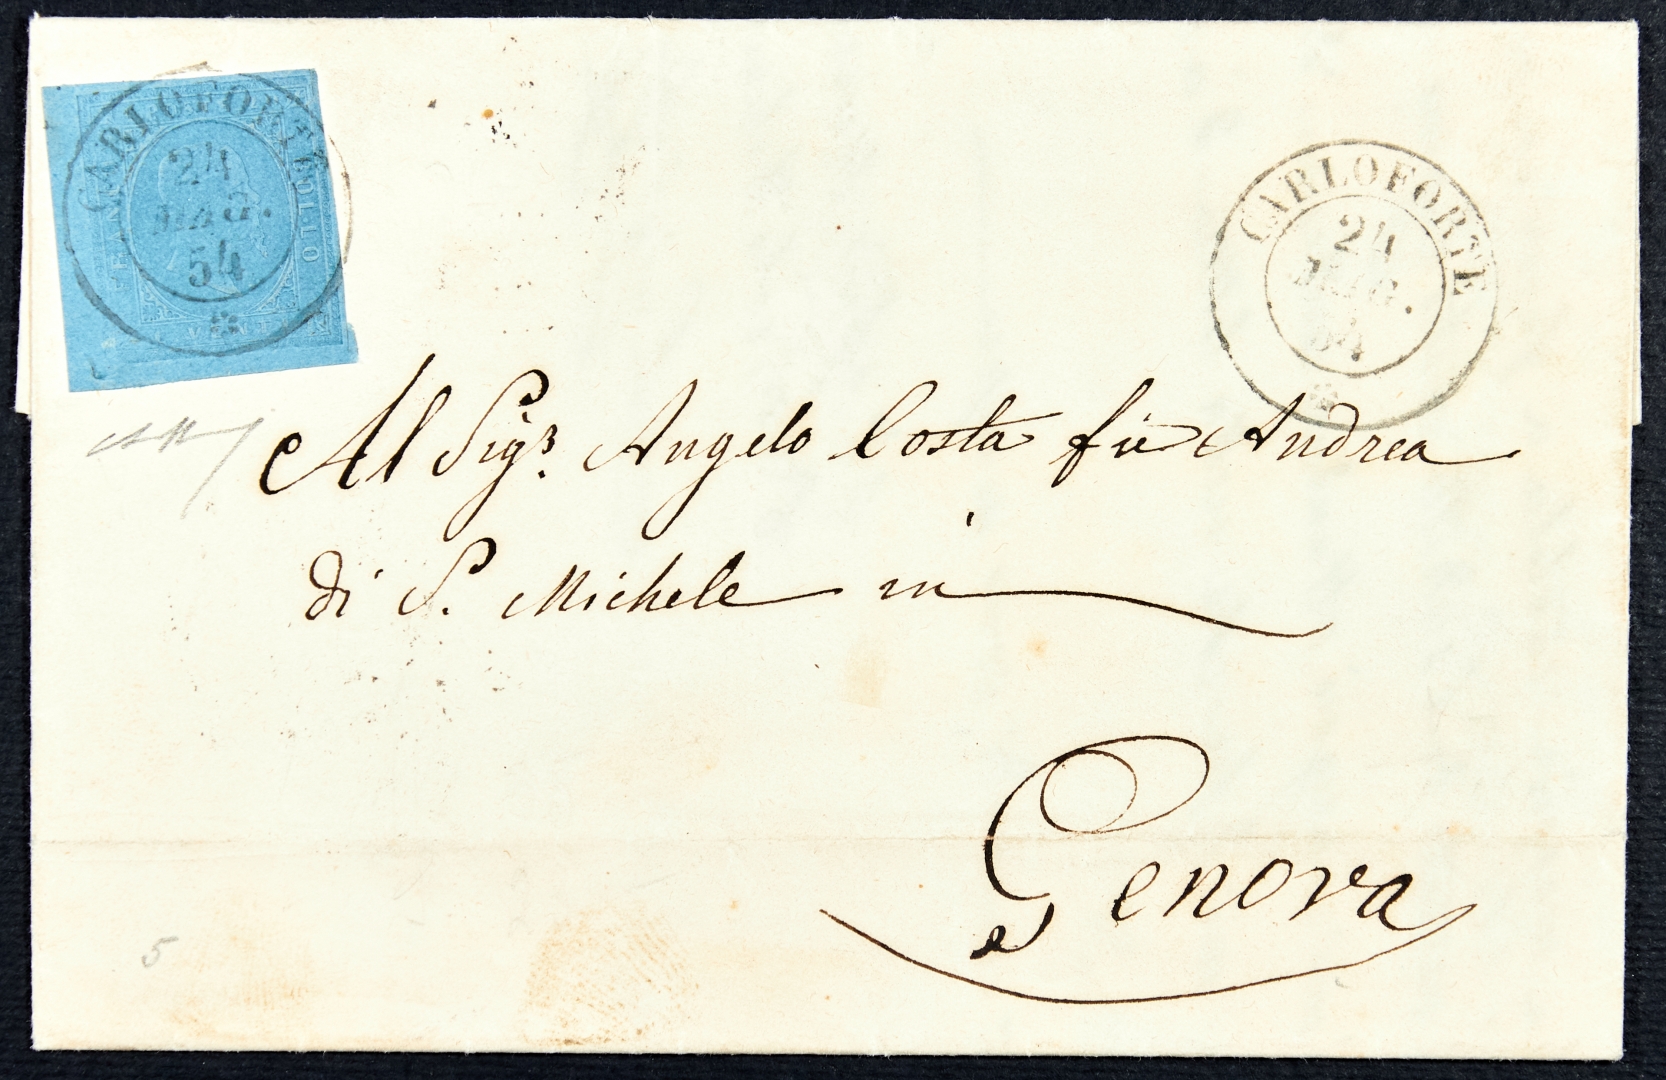 CARLOFORTE
24
MAG.
54
CARLOFORTE
24
MAG.
54
Al Sigr. Angelo Costa fù Andrea
di S. Michele in
Genova
5